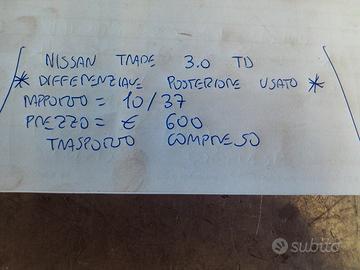 NISSAN TRADE 3.0 TD
* DIFFERENZIALE POSTERIORE USATO *
RAPPORTO = 10/37
PREZZO = € 600
TRASPORTO COMPRESO
subito